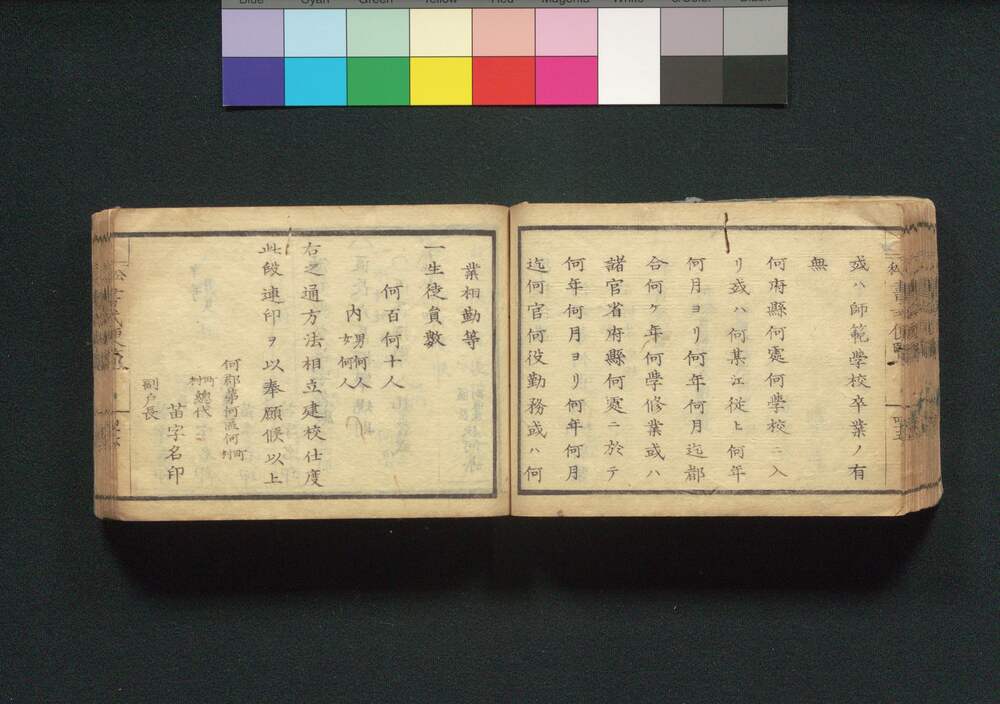 或ハ師範学校卒業ノ有
無
何府縣何處何学校ニ入
リ或ハ何某江従ヒ何年
何月ヨリ何年何月迄都
合何ケ年何學修業或ハ
諸官省府縣何處ニ於テ
何年何月ヨリ何年何月
迄何官何役勤務或ハ何
業相勤等
一生徒員數
何百何十人
内男何人
女何人
右之通方法相立建校仕度
此段連印ヲ以奉願候以上
何郡第何區何町村
町村總代
苗字名印
副戸長